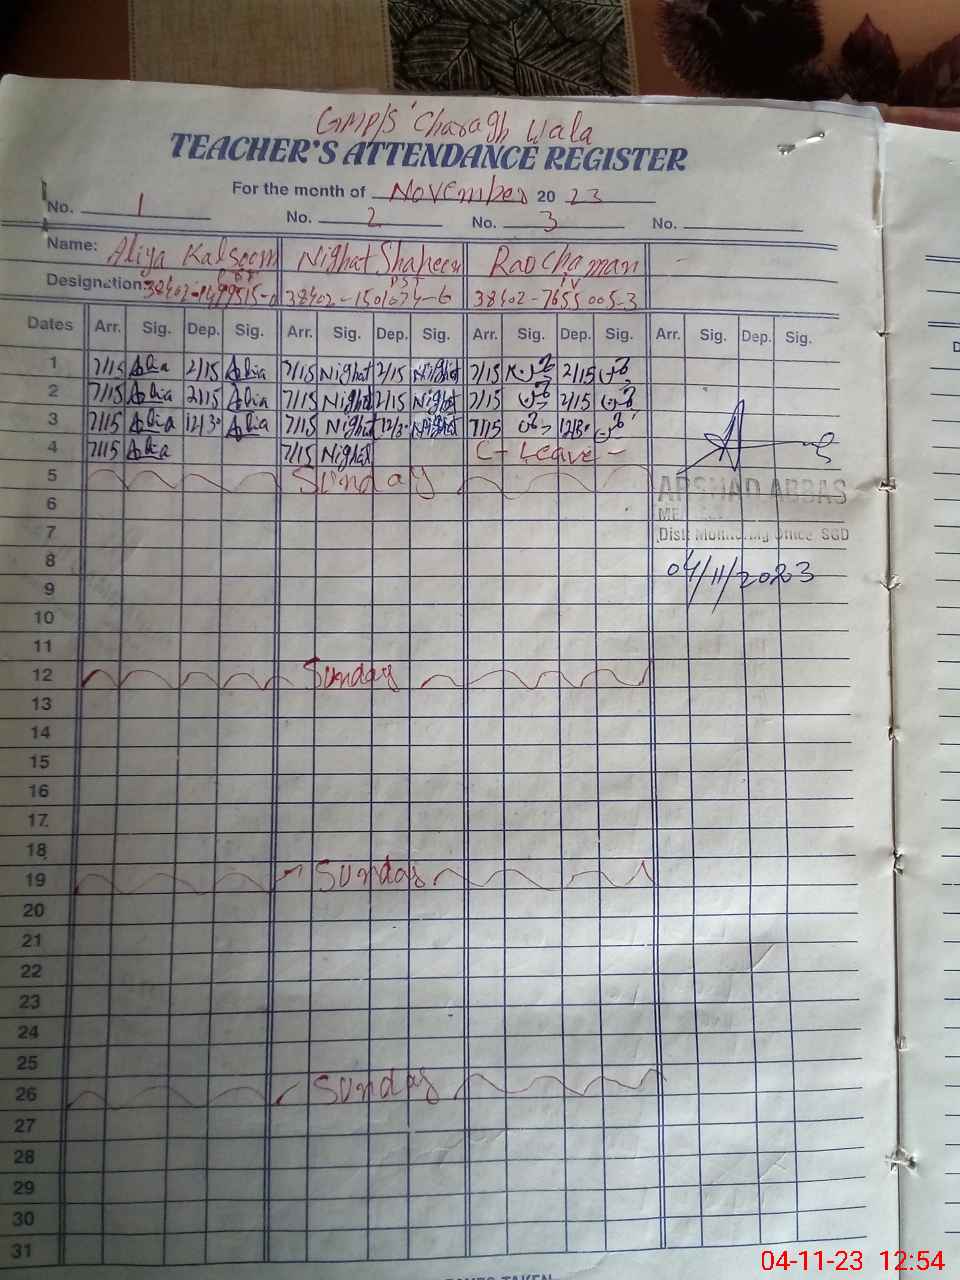 GMP/S Charagh Wala
TEACHER'S ATTENDANCE REGISTER
For the month of November 20 23
No. 1 No. 2 No. 3 No.
Name: Aliya Kalsoom Nighat Shaheen Rao Chaman
Designation: PST IV
38402-1501674-6 38402-7655005-3
Dates Arr. Sig. Dep. Sig. Arr. Sig. Dep. Sig. Arr. Sig. Dep. Sig. Arr. Sig. Dep. Sig.
1 7/15 Alia 2/15 Alia 7/15 Nighat 2/15 Nighat 7/15 2/15
2 7/15 Alia 2/15 Alia 7/15 Nighat 2/15 Nighat 7/15 2/15
3 7/15 Alia 12/30 Alia 7/15 Nighat 12/30 Nighat 7/15 12/30
4 7/15 Alia 7/15 Nighat C- Leave -
5 Sunday
ARSHAD ABBAS
6
7
Distt Monitoring Office SGD
8
04/11/2023
9
10
11
12 Sunday
13
14
15
16
17
18
19 Sunday
20
21
22
23
24
25
26 Sunday
27
28
29
30
31
04-11-23 12:54